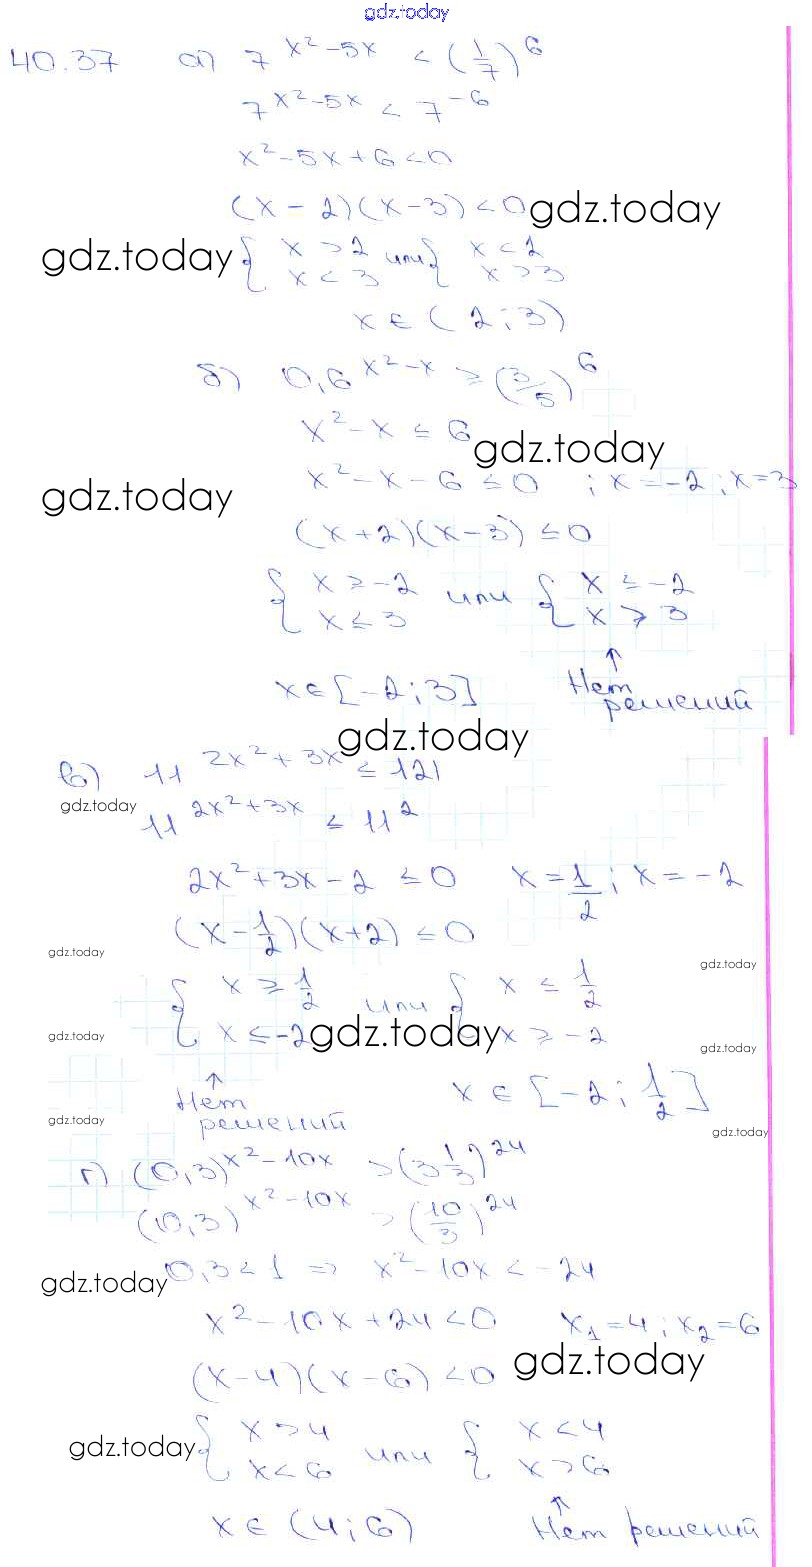 gdz.today
40.37 а) 7^(x²-5x) < (1/7)^6
7^(x²-5x) < 7^(-6)
x²-5x+6<0
(x-2)(x-3)<0 gdz.today
gdz.today { x>2 x<3 или { x<2 x>3
x ∈ (2;3)
б) 0,6^(x²-x) ≥ (3/5)^6
x²-x ≤ 6
gdz.today
gdz.today x²-x-6 ≤ 0 ; x=-2 ; x=3
(x+2)(x-3) ≤ 0
{ x ≥ -2 x ≤ 3 или { x ≤ -2 x ≥ 3
↑
x ∈ [-2;3] Нет
решений
gdz.today
в) 11^(2x²+3x) ≤ 121
gdz.today 11^(2x²+3x) ≤ 11²
2x²+3x-2 ≤ 0 x=1/2 ; x=-2
(x-1/2)(x+2) ≤ 0
gdz.today
gdz.today
{ x ≥ 1/2 x ≤ -2 или { x ≤ 1/2 x ≥ -2
gdz.today gdz.today gdz.today
↑
Нет x ∈ [-2; 1/2]
gdz.today решений gdz.today
г) (0,3)^(x²-10x) > (3 1/3)^24
(0,3)^(x²-10x) > (10/3)^24
gdz.today 0,3<1 => x²-10x < -24
x²-10x+24<0 x₁=4 ; x₂=6
gdz.today
(x-4)(x-6)<0
gdz.today { x>4 x<6 или { x<4 x>6
↑
x ∈ (4;6) Нет решений